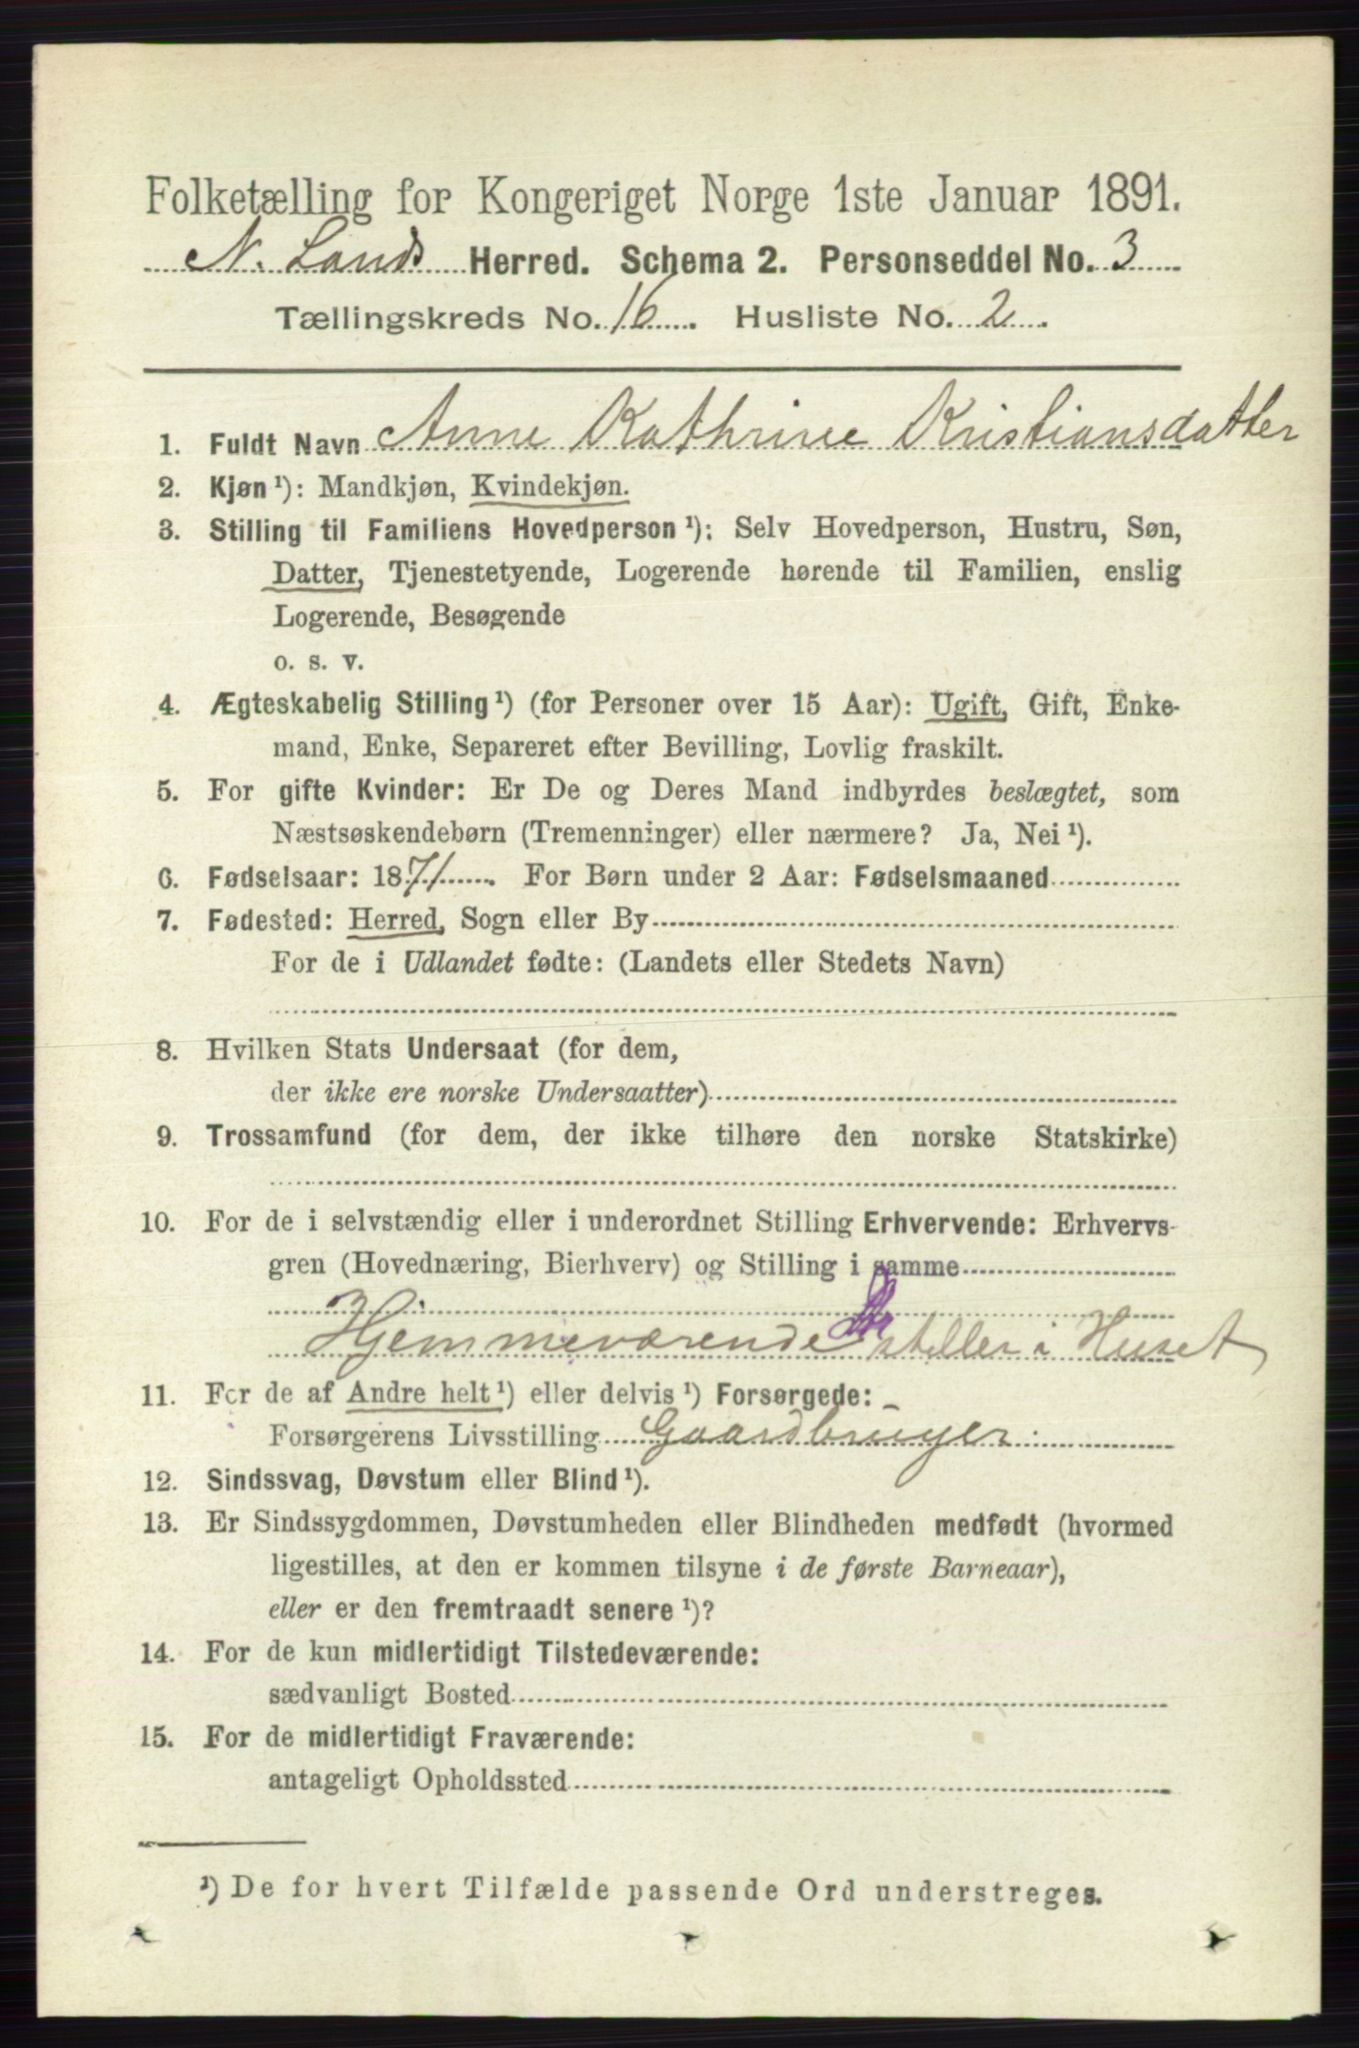 Folketælling for Kongeriget Norge 1ste Januar 1891.
N. Lands Herred. Schema 2. Personseddel No. 3
Tællingskreds No. 16. Husliste No. 2.
1. Fuldt Navn Anne Kathrine Kristiansdatter
2. Kjøn ¹): Mandkjøn, Kvindekjøn.
3. Stilling til Familiens Hovedperson ¹): Selv Hovedperson, Hustru, Søn,
Datter, Tjenestetyende, Logerende hørende til Familien, enslig
Logerende, Besøgende
o. s. v.
4. Ægteskabelig Stilling ¹) (for Personer over 15 Aar): Ugift, Gift, Enke-
mand, Enke, Separeret efter Bevilling, Lovlig fraskilt.
5. For gifte Kvinder: Er De og Deres Mand indbyrdes beslægtet, som
Næstsøskendebørn (Tremenninger) eller nærmere? Ja, Nei ¹).
6. Fødselsaar: 1871. For Børn under 2 Aar: Fødselsmaaned
7. Fødested: Herred, Sogn eller By
For de i Udlandet fødte: (Landets eller Stedets Navn)
8. Hvilken Stats Undersaat (for dem,
der ikke ere norske Undersaatter)
9. Trossamfund (for dem, der ikke tilhøre den norske Statskirke)
10. For de i selvstændig eller i underordnet Stilling Erhvervende: Erhvervs-
gren (Hovednæring, Bierhverv) og Stilling i samme
Hjemmeværende steller i Huset
11. For de af Andre helt ¹) eller delvis ¹) Forsørgede:
Forsørgerens Livsstilling Gaardbruger
12. Sindssvag, Døvstum eller Blind ¹).
13. Er Sindssygdommen, Døvstumheden eller Blindheden medfødt (hvormed
ligestilles, at den er kommen tilsyne i de første Barneaar),
eller er den fremtraadt senere ¹)?
14. For de kun midlertidigt Tilstedeværende:
sædvanligt Bosted
15. For de midlertidigt Fraværende:
antageligt Opholdssted
¹) De for hvert Tilfælde passende Ord understreges.